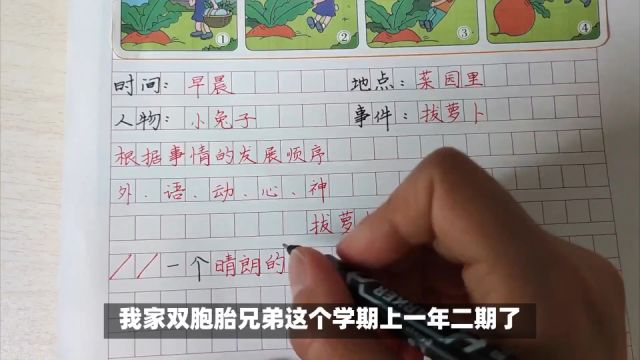 ① ② ③ ④
时间：早晨 地点：菜园里
人物：小兔子 事件：拔萝卜
根据事情的发展顺序
外、语、动、心、神
拔萝
一个晴朗的
我家双胞胎兄弟这个学期上一年二期了